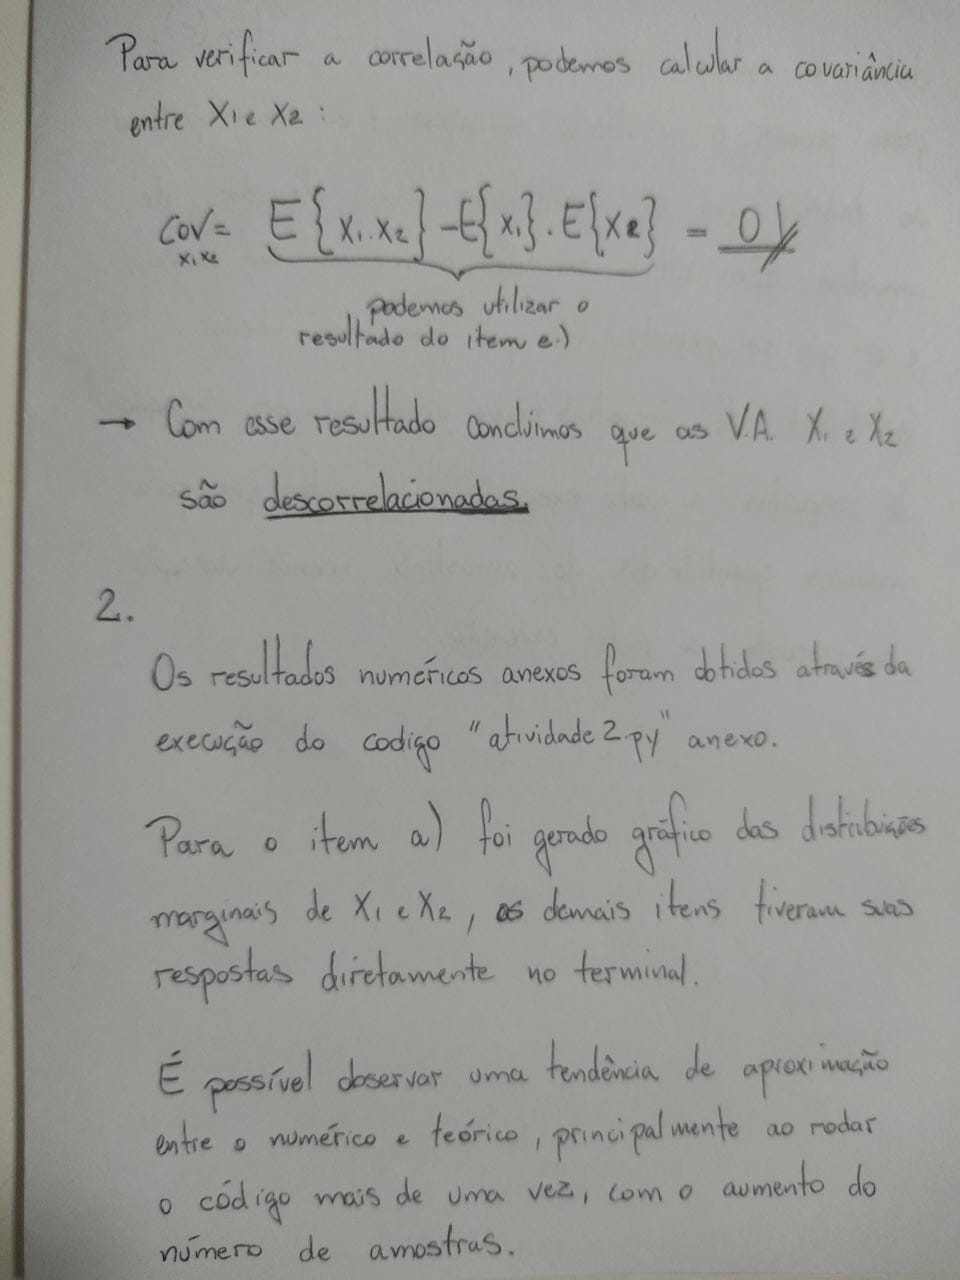 Para verificar a correlação, podemos calcular a covariância
entre X1 e X2 :
COV x1x2 = E{x1.x2} - E{x1}.E{x2} = 0
podemos utilizar o
resultado do item e.)
→ Com esse resultado concluimos que as V.A. X1 e X2
são descorrelacionadas.
2.
Os resultados numéricos anexos foram obtidos através da
execução do codigo "atividade2.py" anexo.
Para o item a) foi gerado gráfico das distribuições
marginais de X1 e X2, os demais itens tiveram suas
respostas diretamente no terminal.
É possível observar uma tendência de aproximação
entre o numérico e teórico, principalmente ao rodar
o código mais de uma vez, com o aumento do
número de amostras.